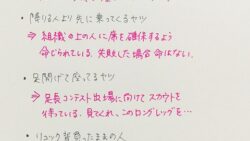 ・降りる人より先に乗ってくるヤツ
⇒ 組織の上の人に席を確保するよう
命じられている。失敗した場合 命はない。
・足開げて座ってるヤツ
⇒ 足長コンテスト出場に向けて スカウトを
待っている。見てくれ、このロングレッグを…
・リュック背負ったままの人